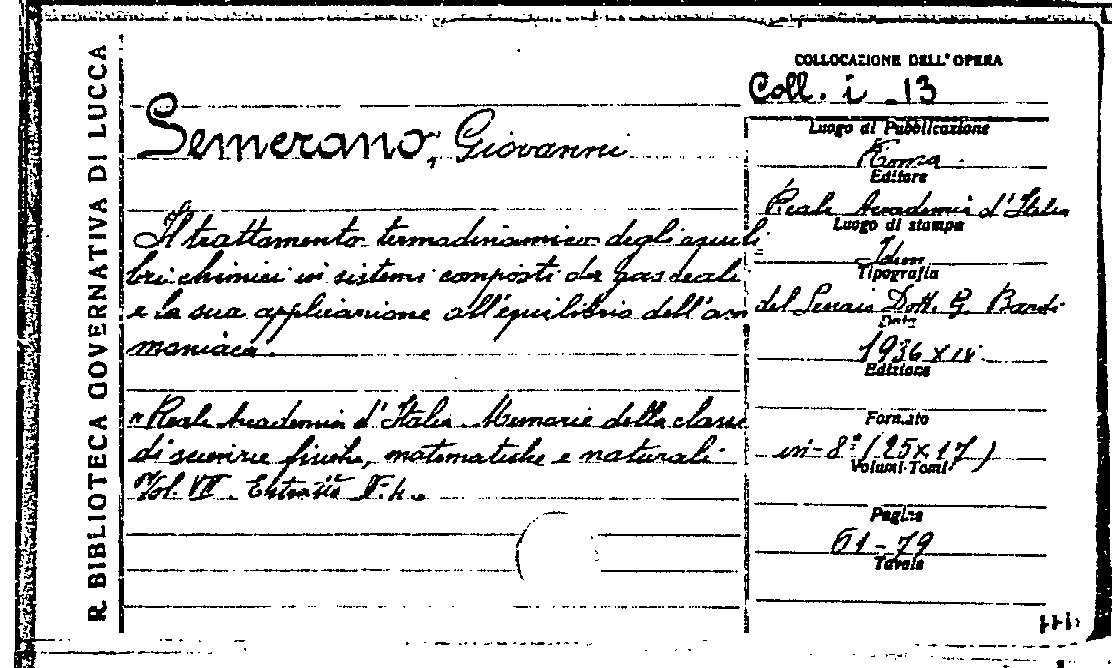 R. BIBLIOTECA GOVERNATIVA DI LUCCA
Semerano, Giovanni
Il trattamento termodinamico degli equili
bri chimici in sistemi composti da gas reali
e la sua applicazione all'equilibrio dell'am
moniaca.
"Reale Accademia d'Italia Memorie della classe
di scienze fisiche, matematiche e naturali
Vol. VII. Estratto N. 4.
COLLOCAZIONE DELL'OPERA
Coll. i. 13
Luogo di Pubblicazione
Roma
Editore
Reale Accademia d'Italia
Luogo di stampa
Idem
Tipografia
del Senato Dott. G. Bardi
Data
1936 XIV
Edizione
Formato
in-8° (25x17)
Volumi-Tomi
Pagine
61-79
Tavole